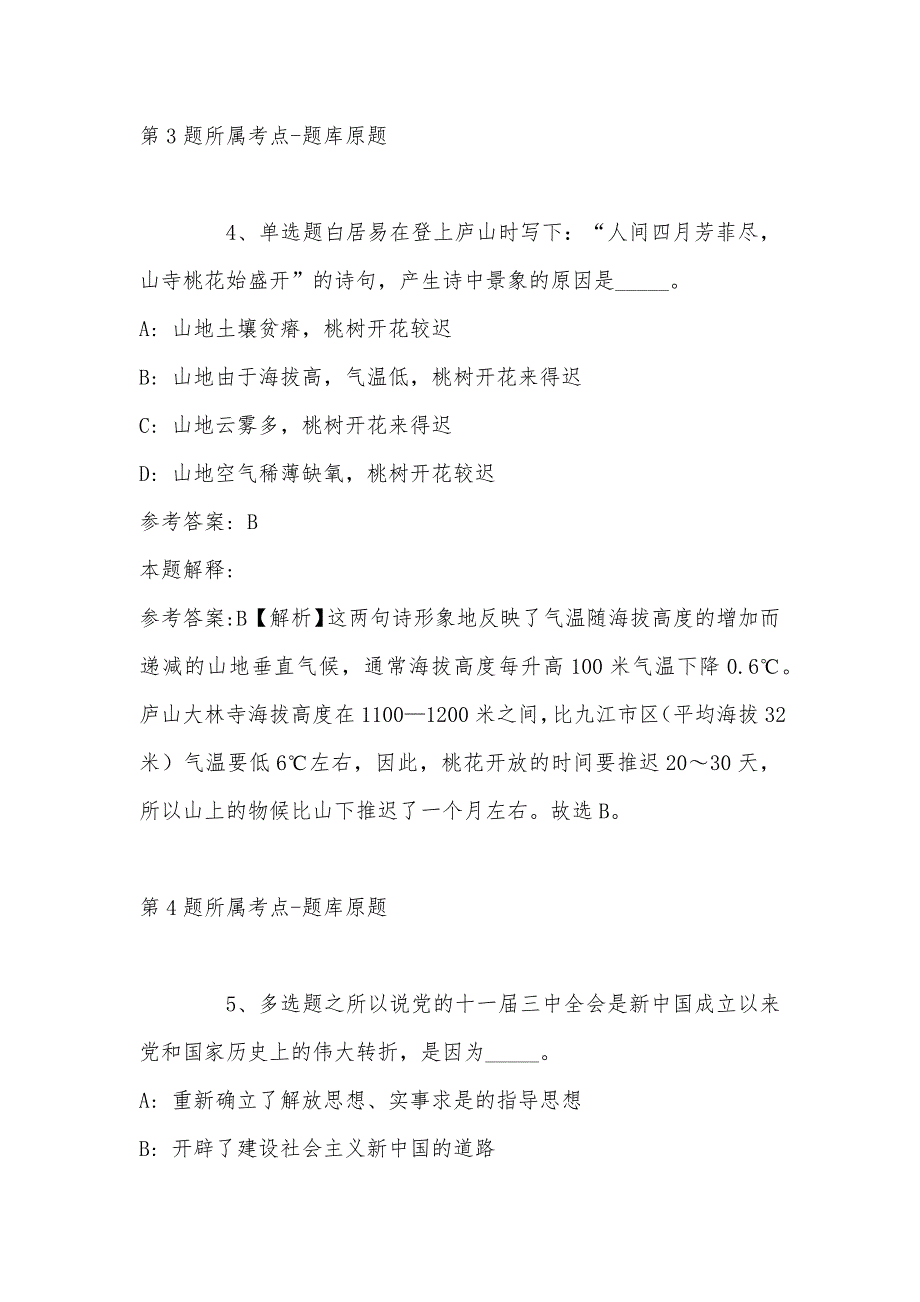 第3题所属考点-题库原题
4、单选题白居易在登上庐山时写下：“人间四月芳菲尽，
山寺桃花始盛开”的诗句，产生诗中景象的原因是_____。
A: 山地土壤贫瘠，桃树开花较迟
B: 山地由于海拔高，气温低，桃树开花来得迟
C: 山地云雾多，桃树开花来得迟
D: 山地空气稀薄缺氧，桃树开花较迟
参考答案: B
本题解释:
参考答案:B【解析】这两句诗形象地反映了气温随海拔高度的增加而
递减的山地垂直气候，通常海拔高度每升高100米气温下降0.6℃。
庐山大林寺海拔高度在1100—1200米之间，比九江市区（平均海拔32
米）气温要低6℃左右，因此，桃花开放的时间要推迟20～30天，
所以山上的物候比山下推迟了一个月左右。故选B。
第4题所属考点-题库原题
5、多选题之所以说党的十一届三中全会是新中国成立以来
党和国家历史上的伟大转折，是因为_____。
A: 重新确立了解放思想、实事求是的指导思想
B: 开辟了建设社会主义新中国的道路